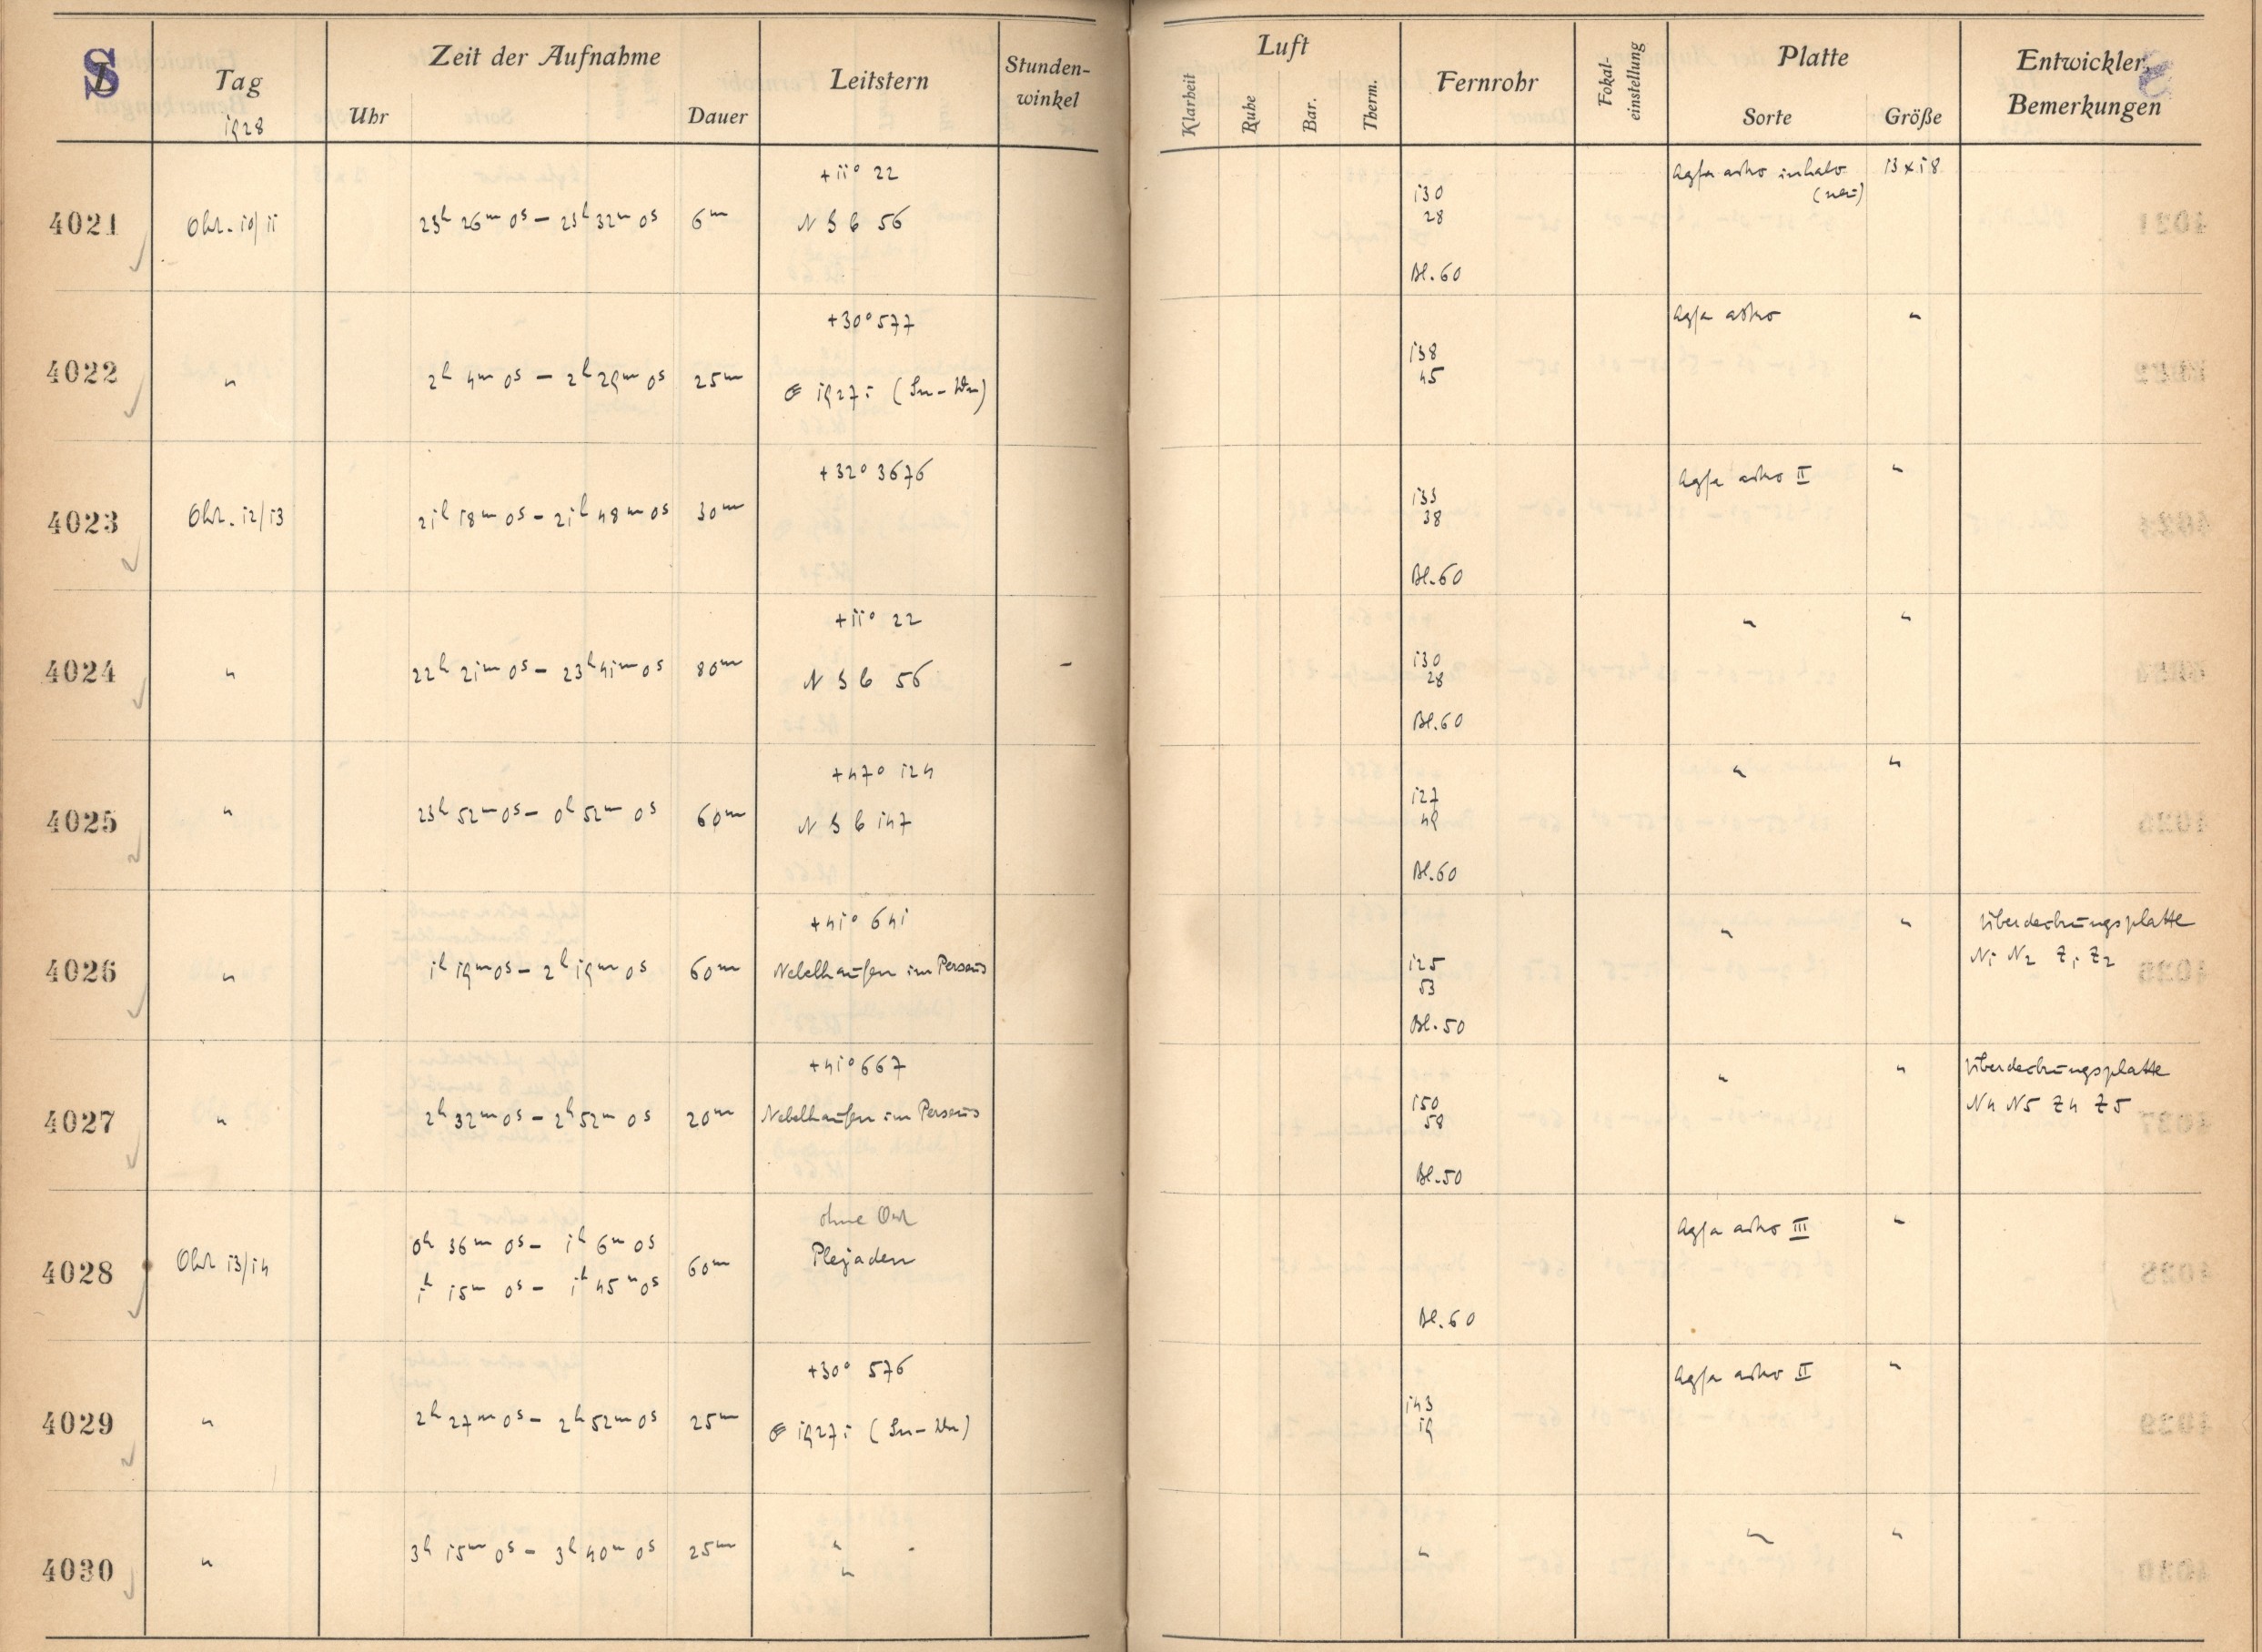 S
Tag
1928
Zeit der Aufnahme
Uhr Dauer
Leitstern
Stunden-
winkel
Luft
Klarheit Ruhe Bar. Therm.
Fernrohr
Fokal-
einstellung
Platte
Sorte Größe
Entwickler,
Bemerkungen
4021 Okt. 10/11 23h 26m 0s – 23h 32m 0s 6m
+11° 22
N S b 56
130
28
Bl. 60
Agfa astro inhalo
(neu)
13 x 18
4022 " 2h 4m 0s – 2h 29m 0s 25m
+30° 577
1927 i
138
45
Agfa astro "
4023 Okt. 12/13 21h 18m 0s – 21h 48m 0s 30m
+32° 3676
133
38
Bl. 60
Agfa astro II "
4024 " 22h 21m 0s – 23h 41m 0s 80m
+11° 22
N S b 56
–
130
28
Bl. 60
" "
4025 " 23h 52m 0s – 0h 52m 0s 60m
+47° 124
N S b 147
127
49
Bl. 60
" "
4026 " 1h 19m 0s – 2h 19m 0s 60m
+41° 641
Nebelhaufen im Perseus
125
53
Bl. 50
" "
Überdeckungsplatte
N1 N2 Z1 Z2
4027 " 2h 32m 0s – 2h 52m 0s 20m
+41° 667
Nebelhaufen im Perseus
150
58
Bl. 50
" "
Überdeckungsplatte
N4 N5 Z4 Z5
4028 Okt 13/14
0h 36m 0s – 1h 6m 0s
1h 15m 0s – 1h 45m 0s
60m
ohne Ort
Plejaden
Bl. 60
Agfa astro III "
4029 " 2h 27m 0s – 2h 52m 0s 25m
+30° 576
1927 i
143
19
Agfa astro II "
4030 " 3h 15m 0s – 3h 40m 0s 25m
"
"
"
" "